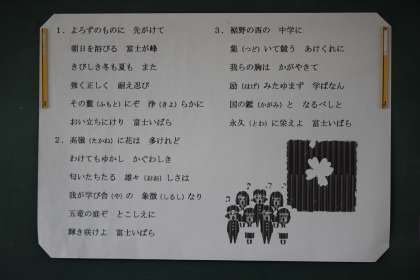 1．よろずのものに　先がけて
朝日を浴びる　富士が峰
きびしき冬も夏も　また
強く正しく　耐え忍び
その麓（ふもと）にぞ　浄（きよ）らかに
おい立ちにけり　富士いばら
2．高嶺（たかね）に花は　多けれど
わけてもゆかし　かぐわしき
匂いたちたる　雄々（おお）しさは
我が学び舎（や）の　象徴（しるし）なり
五竜の庭ぞ　とこしえに
輝き咲けよ　富士いばら
3．裾野の西の　中学に
集（つど）いて競う　あけくれに
我らの胸は　かがやきて
励（はげ）みたゆまず　学ばなん
国の鑑（かがみ）と　なるべしと
永久（とわ）に栄えよ　富士いばら